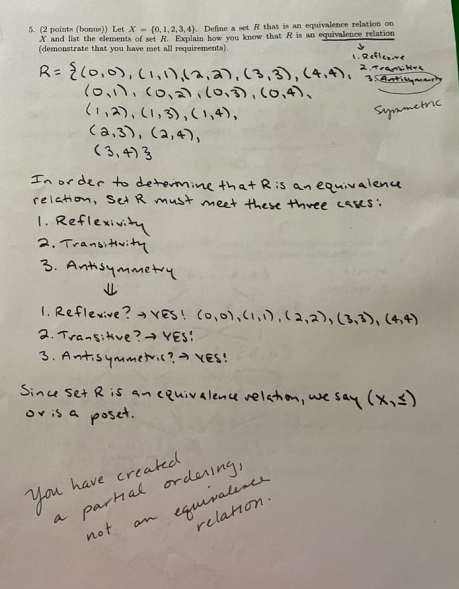 5. (2 points (bonus)) Let X = {0, 1, 2, 3, 4}. Define a set R that is an equivalence relation on
X and list the elements of set R. Explain how you know that R is an equivalence relation
(demonstrate that you have met all requirements).
↓
1. Reflexive
2. Transitive
3. Antisymmetry
Symmetric
R = {(0,0), (1,1), (2,2), (3,3), (4,4),
(0,1), (0,2), (0,3), (0,4),
(1,2), (1,3), (1,4),
(2,3), (2,4),
(3,4)}
In order to determine that R is an equivalence
relation, set R must meet these three cases:
1. Reflexivity
2. Transitivity
3. Antisymmetry
⇓
1. Reflexive? → YES! (0,0), (1,1), (2,2), (3,3), (4,4)
2. Transitive? → YES!
3. Antisymmetric? → YES!
Since set R is an equivalence relation, we say (X, ≤)
or is a poset.
You have created
a partial ordering,
not an equivalence
relation.